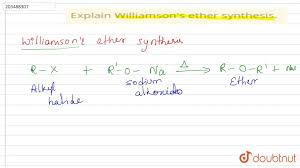 203488307
Explain Williamson's ether synthesis.
Williamson's ether synthesis
R-X + R'-O-Na Δ→ R-O-R' + NaX
Alkyl halide
sodium alkoxide
Ether
doubtnut